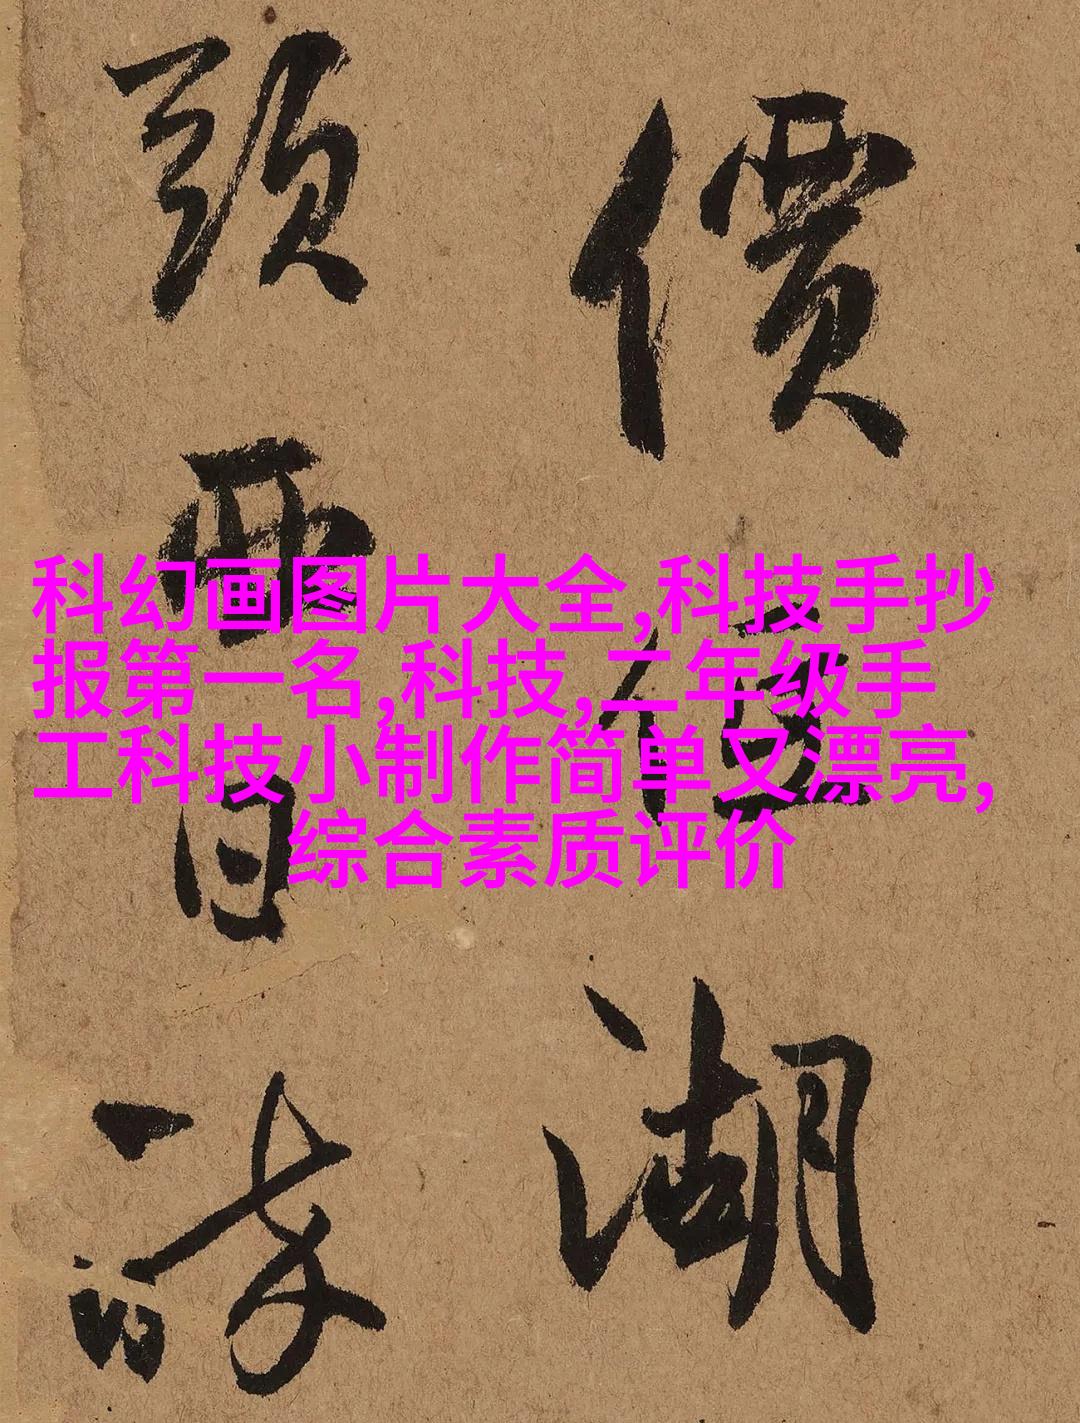 價湖
頭日
科幻画图片大全,科技手抄
报第一名,科技,二年级手
工科技小制作简单又漂亮,
综合素质评价